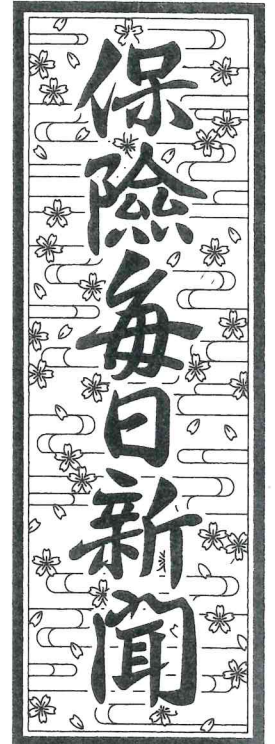 保險毎日新聞